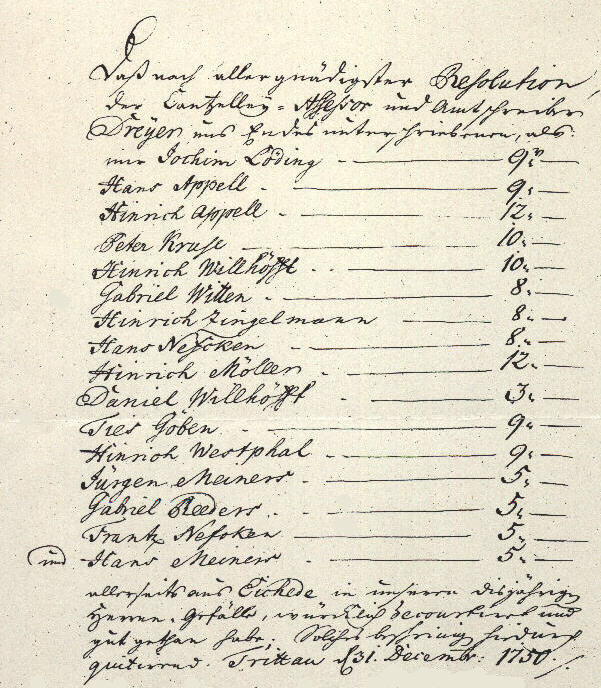 Daß nach allergnädigster Resolution,
der Cantzelley-Assessor und Amtschreiber
Dreyer, uns Endes unterschriebenen, als:
mir Jochim Löding - 9
Hans Appell - 9.
Hinrich Appell - 12.
Peter Kruse 10.
Hinrich Willhöfft .. 10.
Gabriel Witten - 8.
Hinrich Zingelmann 8.
Hans Nescken 8.
Hinrich Möller - 12.
Daniel Willhöfft . 3.
Ties Göben - 9.
Hinrich Westphal - 9.
Jürgen Meiners - 5.
Gabriel Reeders . 5.
Frantz Nescken 5.
und Hans Meiners . 5.
allerseits aus Eichede in unseren disjährigen
Herren-Gefälle, würcklich decourtiret und
gut gethan habe; Solches bescheinigen hiedurch
quitirend. Trittau d 31. Decembr: 1750.